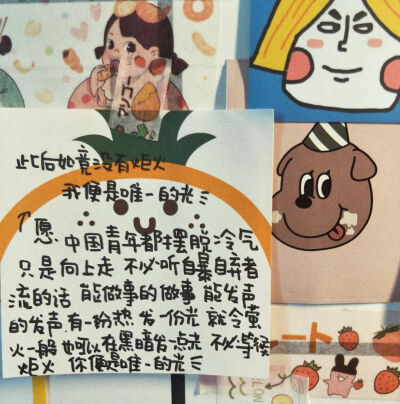 此后如竟没有炬火
我便是唯一的光
愿:中国青年都摆脱冷气
只是向上走 不必听自暴自弃者
流的话 能做事的做事 能发声
的发声.有一份热 发一份光 就令萤
火一般 也可以在黑暗发一点光 不必等候
炬火 你便是唯一的光
ート